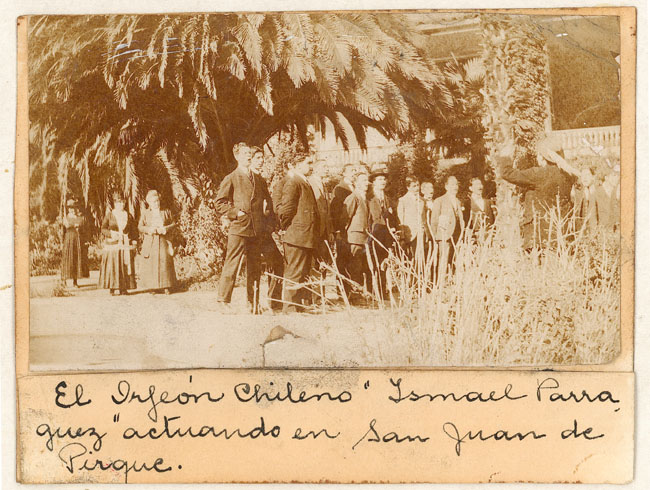 El Orfeón Chileno "Ismael Parra
guez" actuando en San Juan de
Pirque.